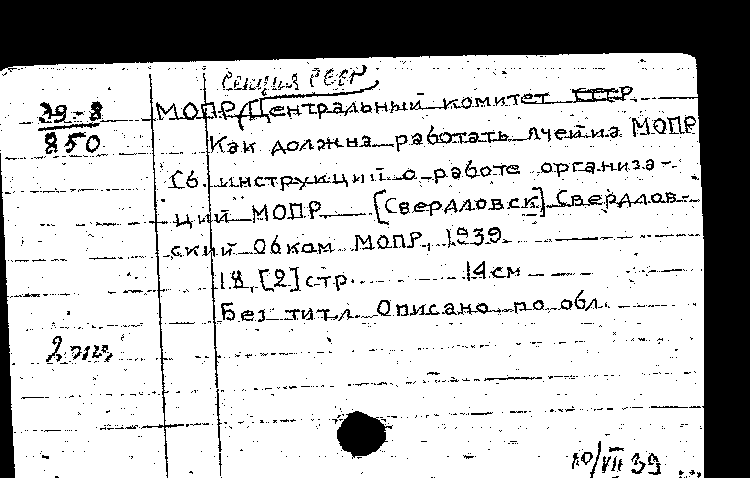 Секция СССР
39-8 МОПР. Центральный комитет СССР.
850 Как должна работать ячейка МОПР
Сб. инструкций о работе организа-
ций МОПР. [Свердловск] Свердлов-
ский Обком МОПР, 1939.
18, [2] стр. 14 см
Без тит. л. Описано по обл.
2 экз
10/VII 39